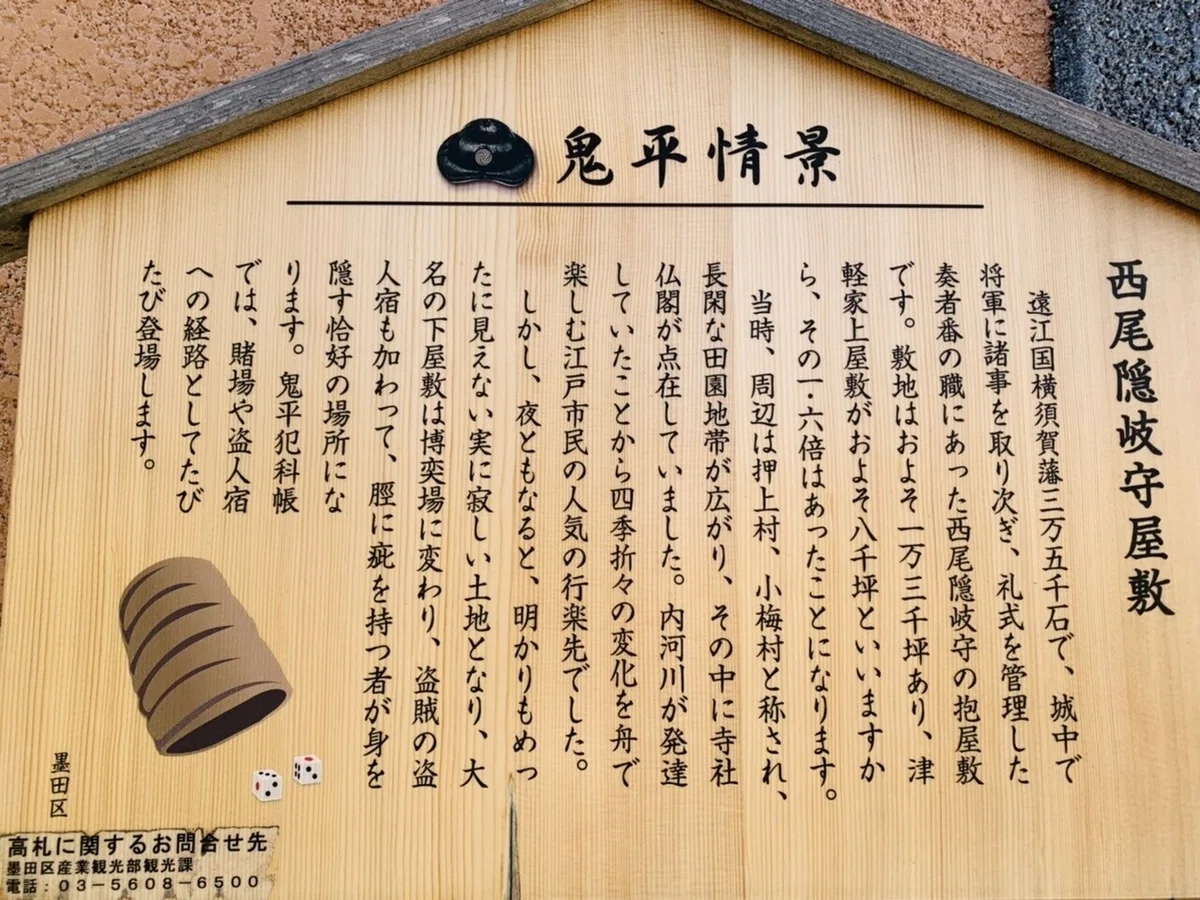 鬼平情景
西尾隠岐守屋敷
遠江国横須賀藩三万五千石で、城中で
将軍に諸事を取り次ぎ、礼式を管理した
奏者番の職にあった西尾隠岐守の抱屋敷
です。敷地はおよそ一万三千坪あり、津
軽家上屋敷がおよそ八千坪といいますか
ら、その一・六倍はあったことになります。
当時、周辺は押上村、小梅村と称され、
長閑な田園地帯が広がり、その中に寺社
仏閣が点在していました。内河川が発達
していたことから四季折々の変化を舟で
楽しむ江戸市民の人気の行楽先でした。
しかし、夜ともなると、明かりもめっ
たに見えない実に寂しい土地となり、大
名の下屋敷は博奕場に変わり、盗賊の盗
人宿も加わって、脛に疵を持つ者が身を
隠す恰好の場所にな
ります。鬼平犯科帳
では、賭場や盗人宿
への経路としてたび
たび登場します。
墨田区
高札に関するお問合せ先
墨田区産業観光部観光課
電話：03－5608－6500